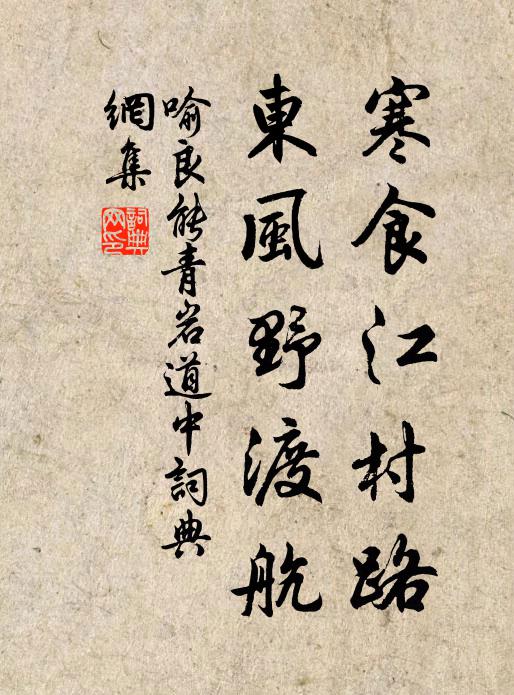 寒食江村路
東風野渡航
喻良能青岩道中詞典
網集
詞典
网印